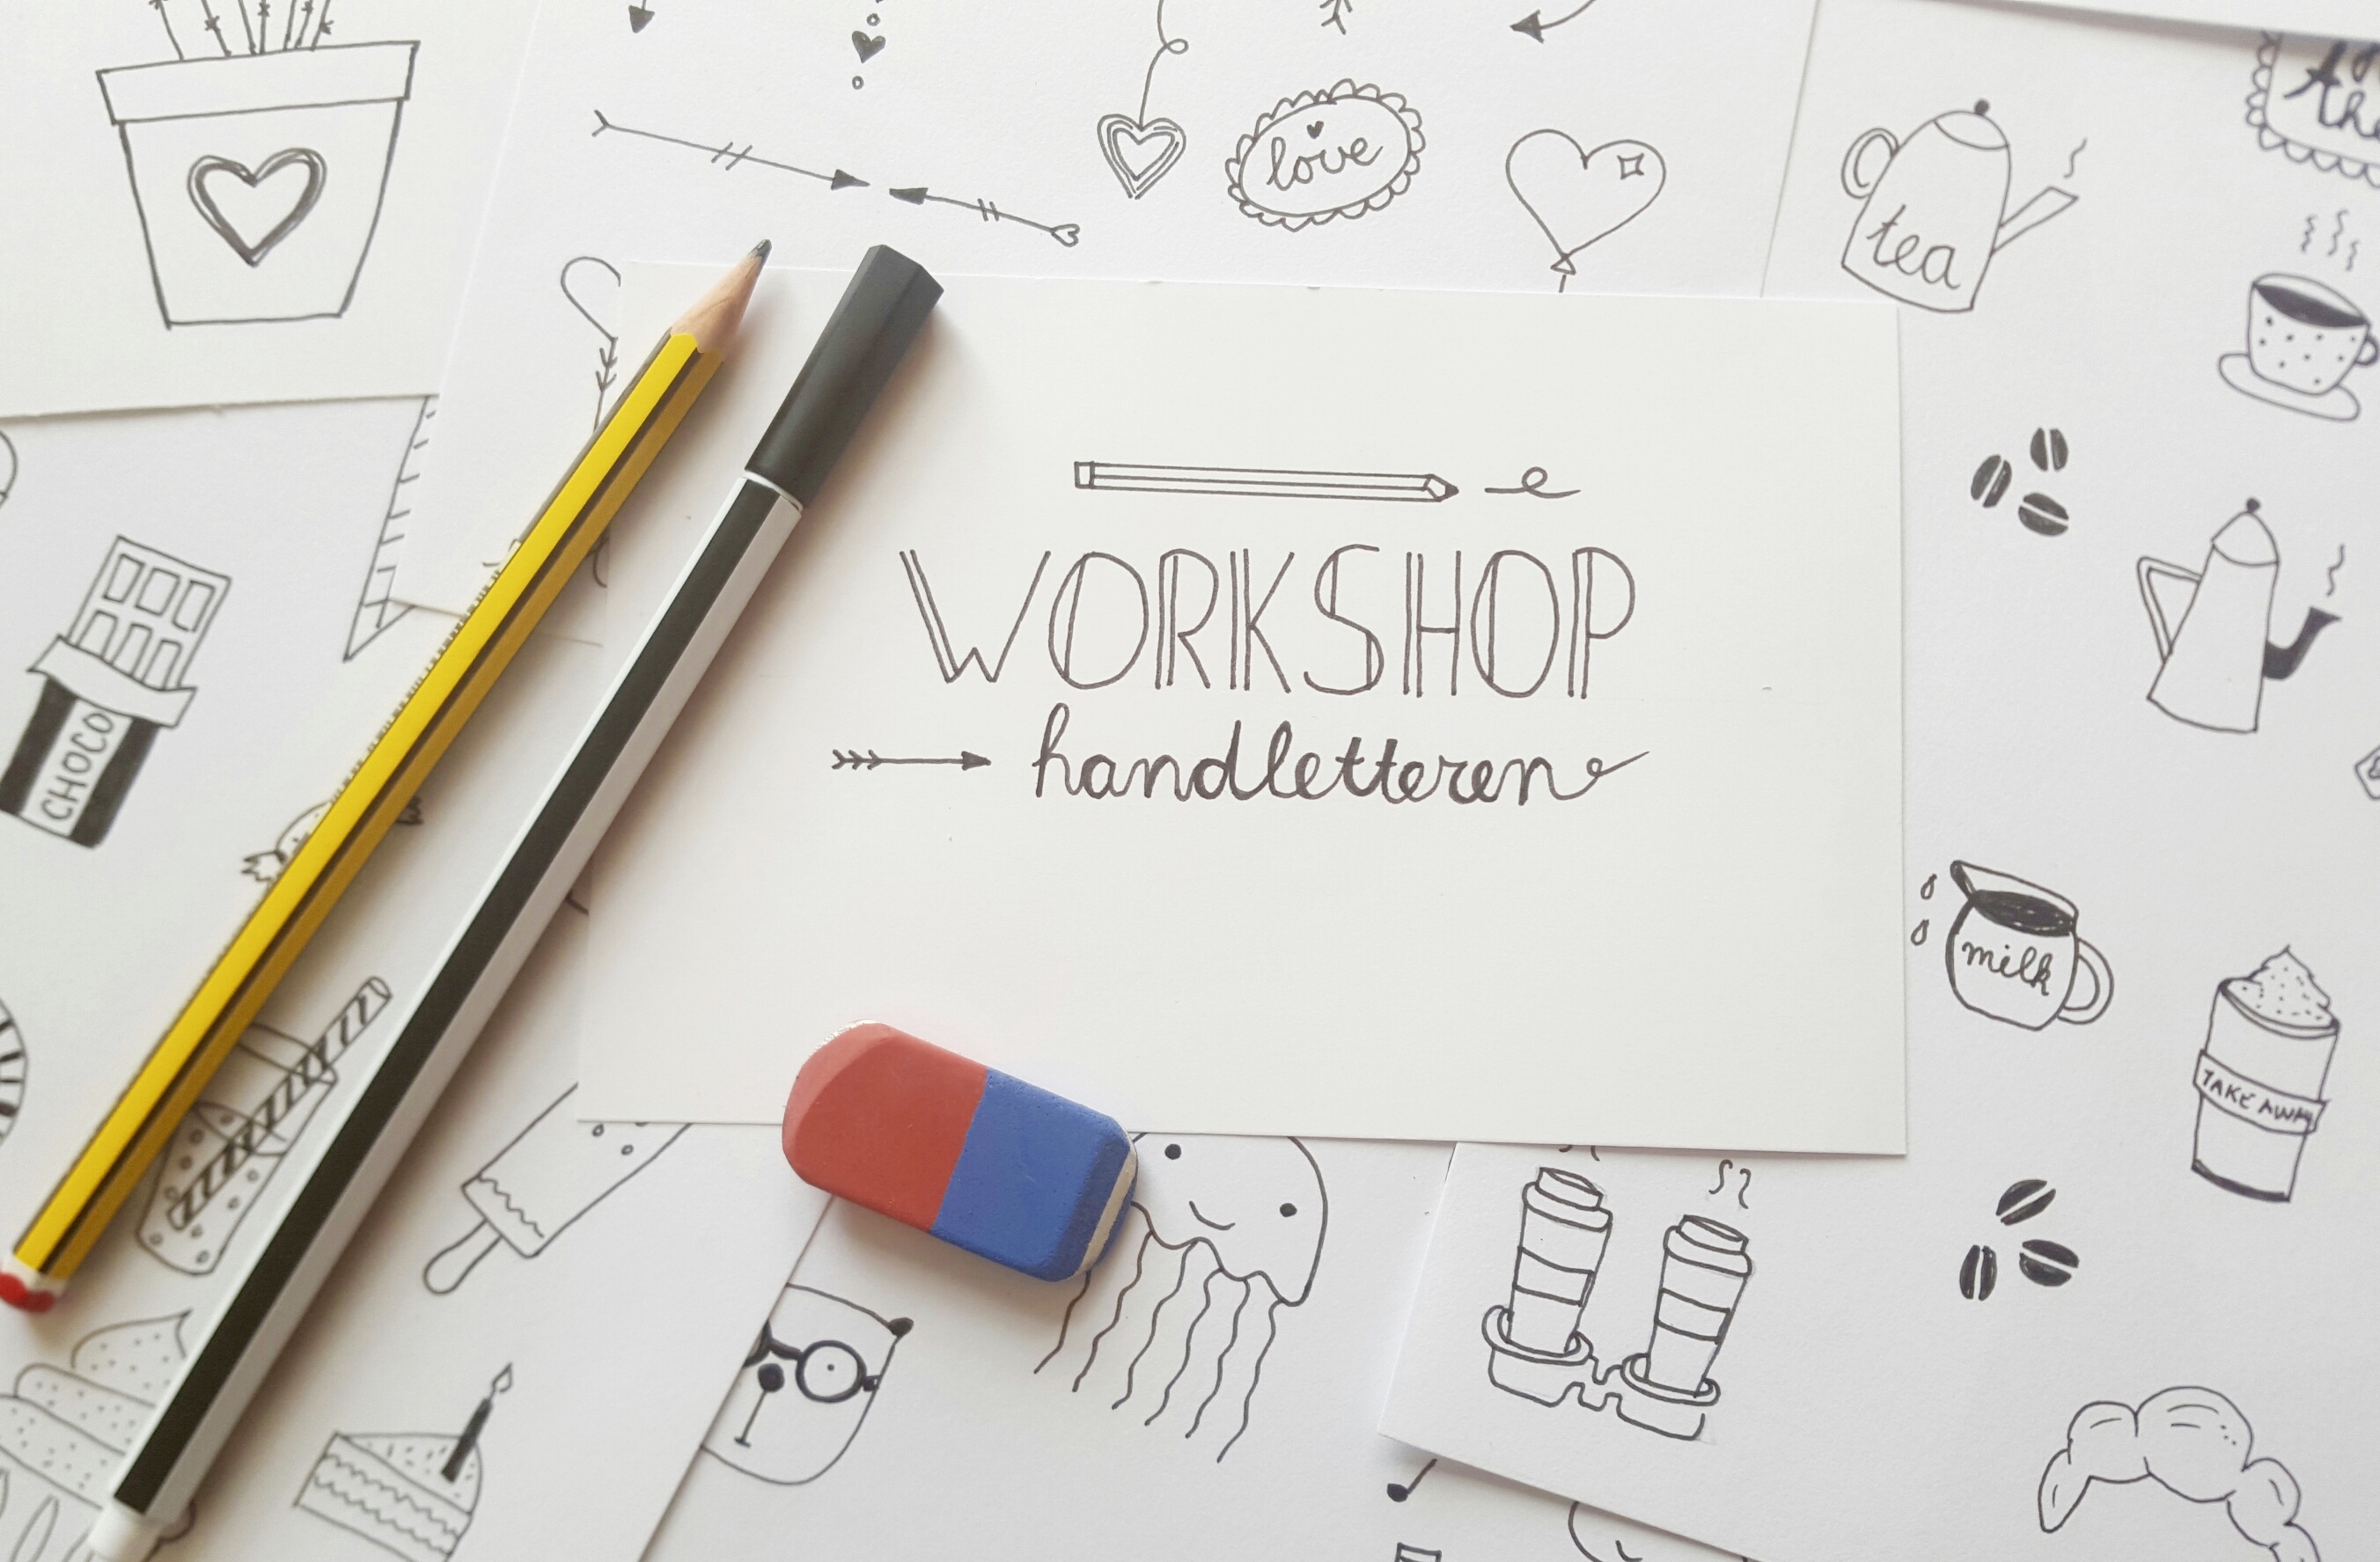 love
tea
WORKSHOP
handletteren
CHOCO
milk
TAKE AWAY